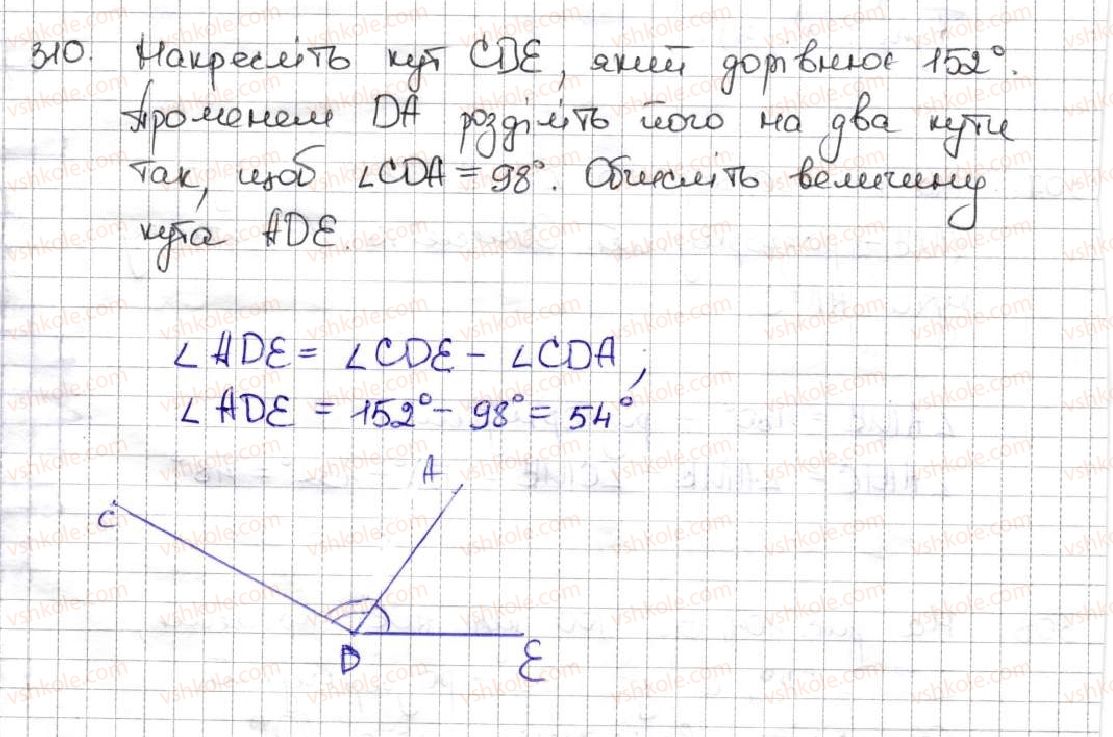 310. Накресліть кут CDE, який дорівнює 152°.
Променем DA розділіть його на два кути
так, щоб ∠CDA = 98°. Обчисліть величину
кута ADE.
∠ADE = ∠CDE - ∠CDA,
∠ADE = 152° - 98° = 54°
A
C
D
E
vshkole.com